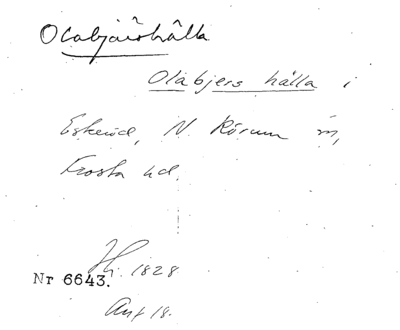 Olabjärshälla
Olabjers hälla i
Eskeröd, N. Rörum sn,
Frosta hd.
Hi. 1828
Nr 6643.
Ant 18.